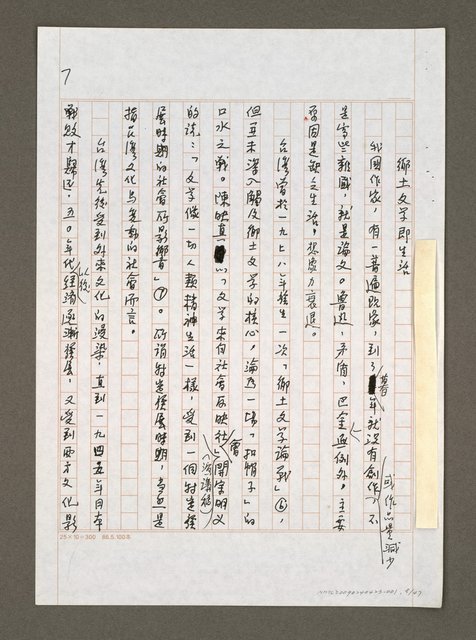 7
鄉土文學即生活
我國作家，有一普遍現象，到了暮年就沒有創作或作品量減少，不
是寫些雜感，就是論文。魯迅、矛盾、巴金無例外。主要
原因是缺乏生活，想像力衰退。
台灣曾於一九七八年發生一次「鄉土文學論戰」⑥，
但並未深入觸及鄉土文學的核心，淪為一場「扣帽子」的
口水之戰。陳映真以「文學來自社會反映社會」（演講稿）開宗明義
的說：「文學像一切人類精神生活一樣，受到一個特定發
展時期的社會所影響着」⑦。所謂特定發展時期，當然是
指台灣文化與變動的社會而言。
台灣先後受到外來文化的浸染，直到一九四五年日本
戰敗才歸還，五〇年代以後經濟逐漸發展，又受到西方文化影
25×10=300 86.5.100本